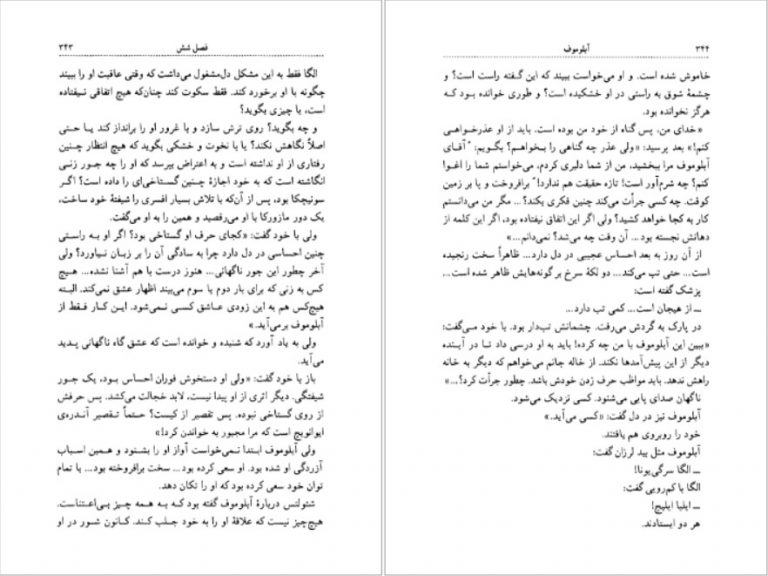 فصل شش ۳۴۳
الگا فقط به این مشکل دل‌مشغول می‌داشت که وقتی عاقبت او را ببیند
چگونه با او برخورد کند. فقط سکوت کند چنان‌که هیچ اتفاقی نیفتاده
است، یا چیزی بگوید؟
و چه بگوید؟ روی ترش سازد و با غرور او را برانداز کند یا حتی
اصلاً نگاهش نکند؟ یا با نخوت و خشکی بگوید که هیچ انتظار چنین
رفتاری از او نداشته است و به اعتراض بپرسد که او را چه جور زنی
انگاشته است که به خود اجازهٔ چنین گستاخی‌ای را داده است؟ اگر
سونیچکا بود، پس از آن‌که با تلاش بسیار افسری را شیفتهٔ خود ساخت،
یک دور مازورکا با او می‌رقصید و همین را به او می‌گفت.
ولی با خود گفت: «کجای حرف او گستاخی بود؟ اگر او به راستی
چنین احساسی در دل دارد چرا به سادگی آن را بر زبان نیاورد؟ ولی
آخر چطور این جور ناگهانی... هنوز درست با هم آشنا نشده... هیچ
کس به زنی که برای بار دوم یا سوم می‌بیند اظهار عشق نمی‌کند. البته
هیچ‌کس هم به این زودی عاشق کسی نمی‌شود. این کار فقط از
آبلوموف برمی‌آید.»
ولی به یاد آورد که شنیده و خوانده است که عشق گاه ناگهانی پدید
می‌آید.
باز با خود گفت: «ولی او دستخوش فوران احساس بود، یک جور
شیفتگی. دیگر اثری از او پیدا نیست، لابد خجالت می‌کشد. پس حرفش
از روی گستاخی نبوده. پس تقصیر از کیست؟ حتماً تقصیر آندره‌ی
ایوانویچ است که مرا مجبور به خواندن کرد!»
ولی آبلوموف ابتدا نمی‌خواست آواز او را بشنود و همین اسباب
آزردگی او شده بود. او سعی کرده بود... سخت برافروخته بود... با تمام
توان خود سعی کرده بود که او را تکان دهد.
شتولتس دربارهٔ آبلوموف گفته بود که به همه چیز بی‌اعتناست.
هیچ‌چیز نیست که علاقهٔ او را به خود جلب کند. کانون شور در او
۳۴۴ آبلوموف
خاموش شده است. و او می‌خواست ببیند که این گفته راست است؟ و
چشمهٔ شوق به راستی در او خشکیده است؟ و طوری خوانده بود که
هرگز نخوانده بود.
«خدای من، پس گناه از خود من بوده است. باید از او عذرخواهی
کنم!» بعد پرسید: «ولی عذر چه گناهی را بخواهم؟ بگویم: "آقای
آبلوموف مرا ببخشید، من از شما دلبری کردم، می‌خواستم شما را اغوا
کنم؟ چه شرم‌آور است! تازه حقیقت هم ندارد!" برافروخت و پا بر زمین
کوفت. چه کسی جرأت می‌کند چنین فکری بکند؟... مگر من می‌دانستم
کار به کجا خواهد کشید؟ ولی اگر این اتفاق نیفتاده بود، اگر این کلمه از
دهانش نجسته بود... آن وقت چه می‌شد؟ نمی‌دانم...»
از آن روز به بعد احساس عجیبی در دل دارد... ظاهراً سخت رنجیده
است... حتی تب می‌کند... دو لکهٔ سرخ بر گونه‌هایش ظاهر شده است...
پزشک گفته است:
ــ از هیجان است... کمی تب دارد...
در پارک به گردش می‌رفت. چشمانش تب‌دار بود. با خود می‌گفت:
«ببین این آبلوموف با من چه کرده! باید به او درسی داد تا در آینده
دیگر از این پیش‌آمدها نکند. از خاله جانم می‌خواهم که دیگر به خانه
راهش ندهد. باید مواظب حرف زدن خودش باشد. چطور جرأت کرد؟...»
ناگهان صدای پایی می‌شنود. کسی نزدیک می‌شود.
آبلوموف نیز در دل گفت: «کسی می‌آید.»
خود را روبروی هم یافتند.
آبلوموف مثل بید لرزان گفت:
ــ الگا سرگی‌یونا!
الگا با کم‌رویی گفت:
ــ ایلیا ایلیچ!
هر دو ایستادند.